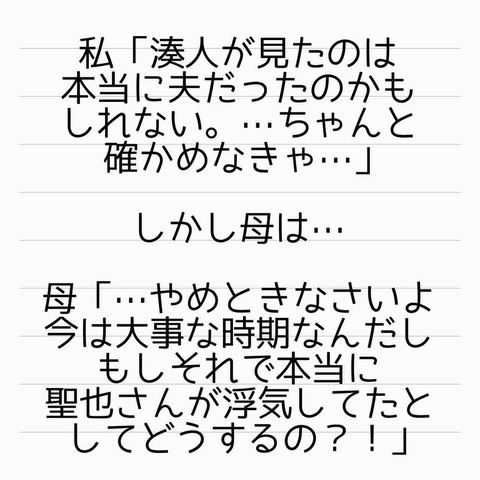 私「湊人が見たのは
本当に夫だったのかも
しれない。…ちゃんと
確かめなきゃ…」
しかし母は…
母「…やめときなさいよ
今は大事な時期なんだし
もしそれで本当に
聖也さんが浮気してたと
してどうするの？！」